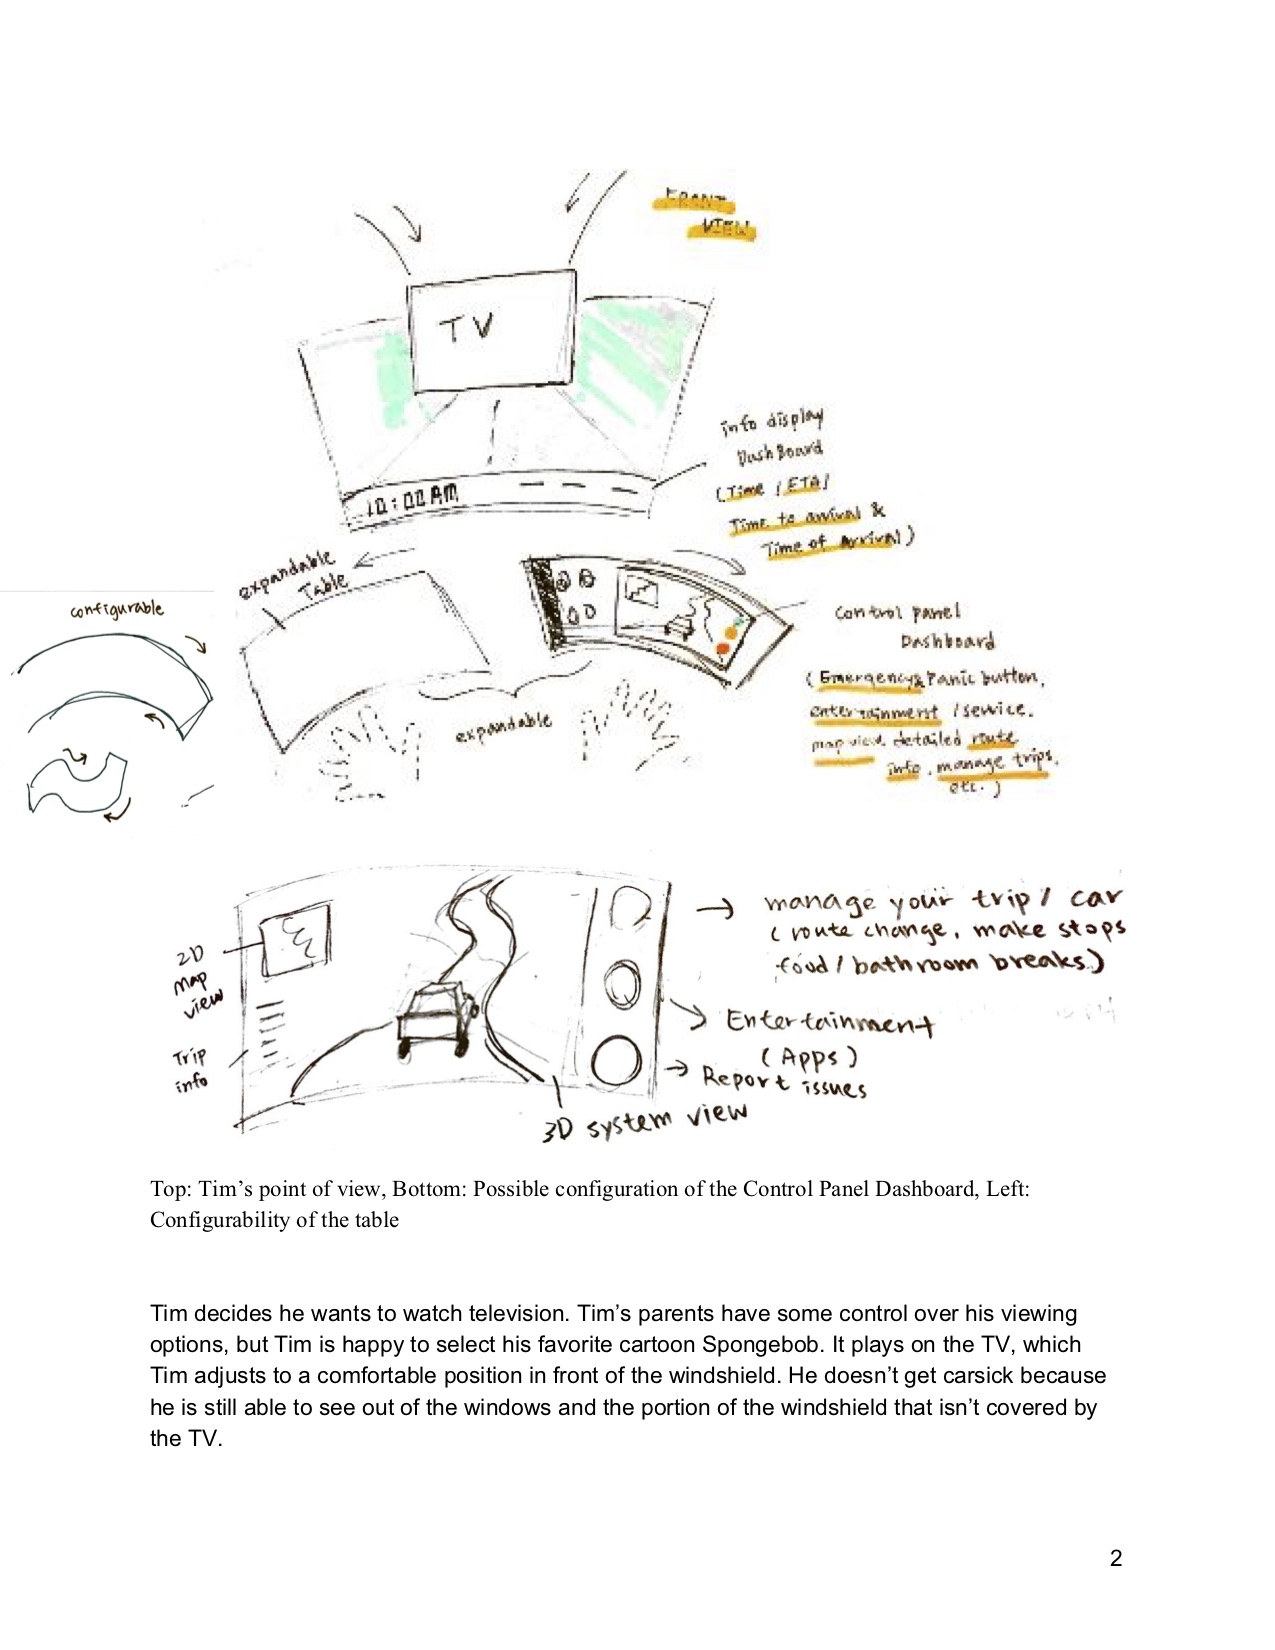 FRONT
VIEW
TV
info display
DashBoard
(Time / ETA /
Time to arrival &
Time of Arrival)
10:00 AM
expandable
Table
configurable
control panel
Dashboard
(Emergency & Panic button,
entertainment / service.
map view, detailed route
info, manage trips,
etc.)
expandable
2D
map
view
Trip
info
→ manage your trip / car
(route change, make stops
food / bathroom breaks)
Entertainment
(Apps)
→ Report issues
3D system view
Top: Tim’s point of view, Bottom: Possible configuration of the Control Panel Dashboard, Left:
Configurability of the table
Tim decides he wants to watch television. Tim’s parents have some control over his viewing
options, but Tim is happy to select his favorite cartoon Spongebob. It plays on the TV, which
Tim adjusts to a comfortable position in front of the windshield. He doesn’t get carsick because
he is still able to see out of the windows and the portion of the windshield that isn’t covered by
the TV.
2